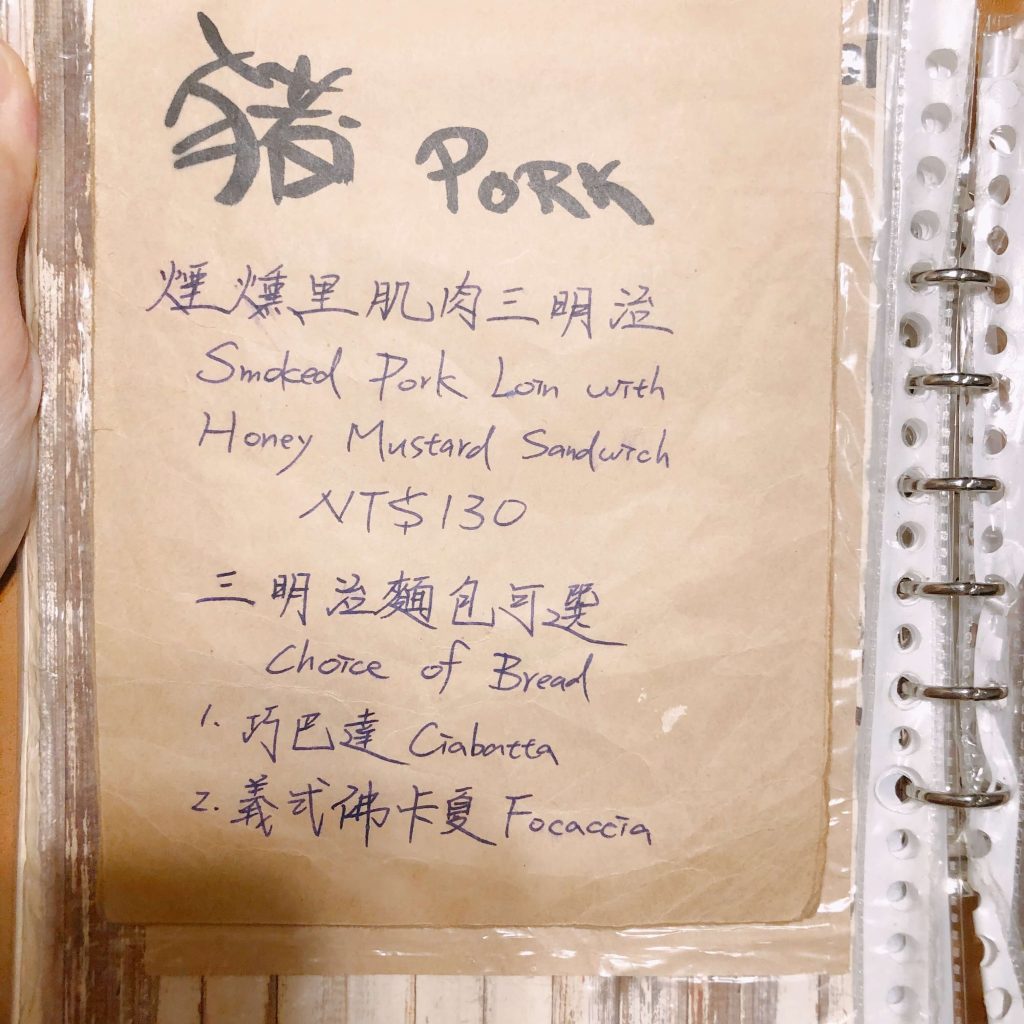 豬 PORK
煙燻里肌肉三明治
Smoked Pork Loin with
Honey Mustard Sandwich
NT$130
三明治麵包可選
Choice of Bread
1. 巧巴達 Ciabatta
2. 義式佛卡夏 Focaccia